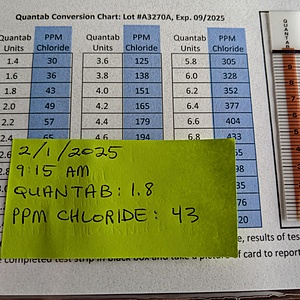 Quantab Conversion Chart: Lot #A3270A, Exp. 09/2025
Quantab Units PPM Chloride Quantab Units PPM Chloride Quantab Units PPM Chloride
1.4 30 3.6 125 5.8 305
1.6 36 3.8 138 6.0 328
1.8 43 4.0 151 6.2 352
2.0 49 4.2 165 6.4 377
2.2 57 4.4 179 6.6 404
2.4 65 4.6 194 6.8 433
2/1/2025
9:15 AM
QUANTAB: 1.8
PPM CHLORIDE: 43
98
35
76
20
results of
completed test strip in black box and take a picture of card to report
QUANTAB